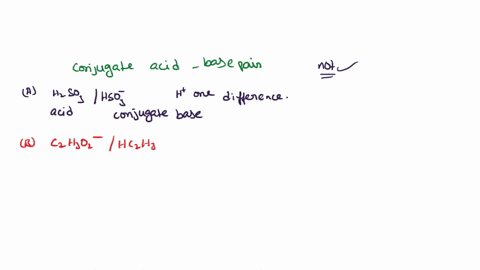 conjugate acid - base pain not ✓
(A) H₂SO₃ / HSO₃⁻ H⁺ one difference.
acid conjugate base
(B) C₂H₃O₂⁻ / HC₂H₃